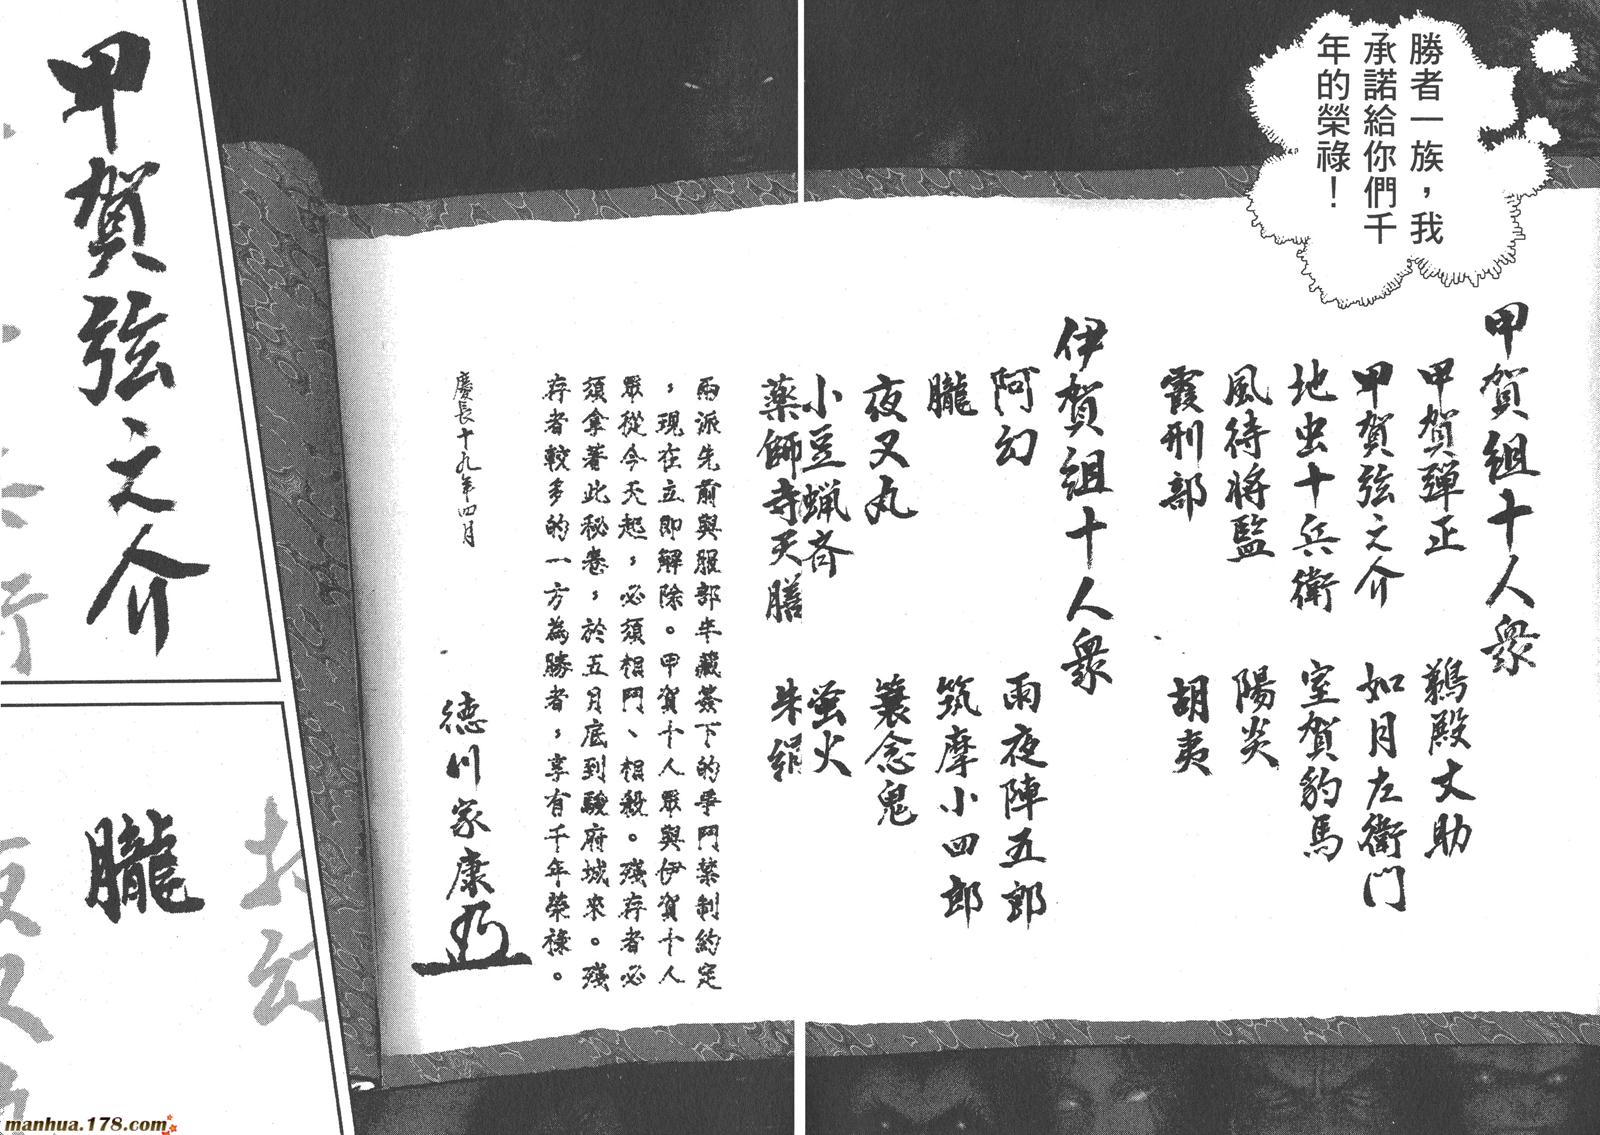 勝者一族，我
承諾給你們千
年的榮祿！
甲賀組十人衆
甲賀彈正
鵜殿丈助
甲賀弦之介
如月左衛門
地虫十兵衛
室賀豹馬
風待将監
陽炎
霞刑部
胡夷
伊賀組十人衆
阿幻
雨夜陣五郎
朧
筑摩小四郎
夜叉丸
簑念鬼
小豆蝋斉
蛍火
薬師寺天膳
朱絹
兩派先前與服部半藏簽下的爭鬥禁制約定
，現在立即解除。甲賀十人眾與伊賀十人
眾從今天起，必須相鬥、相殺。殘存者必
須拿著此秘卷，於五月底到駿府城來。殘
存者較多的一方為勝者，享有千年榮祿。
慶長十九年四月
德川家康
甲賀弦之介
朧
manhua.178.com